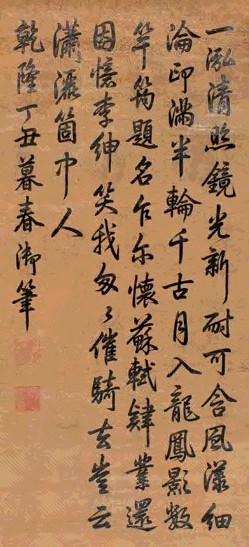 一泓清照鏡光新耐可含風漾細
淪印滿半輪千古月入龍鳳影數
竿筠題名乍爾懷蘇軾肄業還
因憶李紳笑我匆匆催騎去豈云
瀟灑箇中人
乾隆丁丑暮春御筆